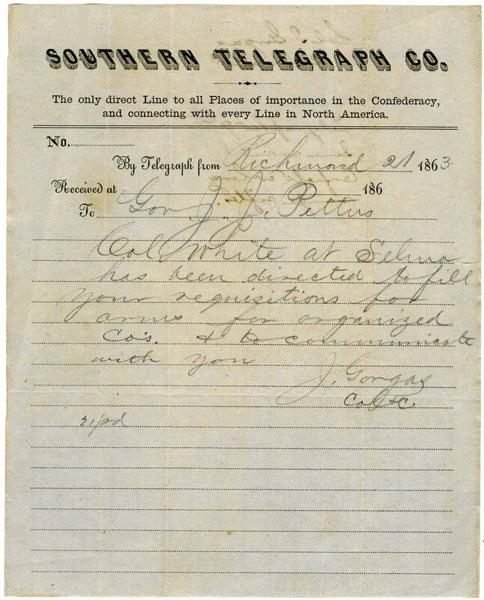 SOUTHERN TELEGRAPH CO.
The only direct Line to all Places of importance in the Confederacy,
and connecting with every Line in North America.
No.
By Telegraph from Richmond 21 1863
Received at 186
To Gov J. J. Pettus
Col. White at Selma
has been directed to fill
your requisitions for
arms for organized
Co's. & to communicate
with you
J. Gorgas
Col &c.
21/pd